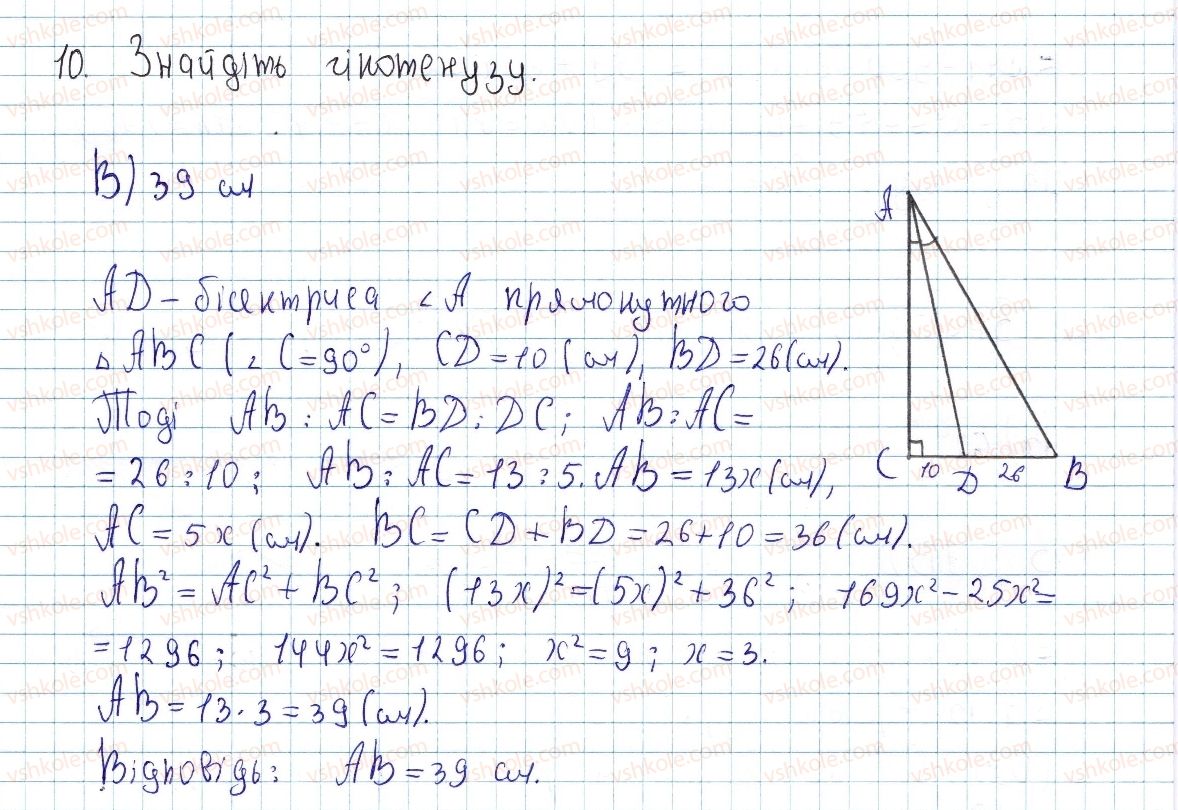 10. Знайдіть гіпотенузу.
В) 39 см
AD – бісектриса ∠A прямокутного
△ABC (∠C = 90°), CD = 10 (см), BD = 26 (см).
Тоді AB : AC = BD : DC; AB : AC =
= 26 : 10; AB : AC = 13 : 5. AB = 13x (см),
AC = 5x (см). BC = CD + BD = 26 + 10 = 36 (см).
AB² = AC² + BC²; (13x)² = (5x)² + 36²; 169x² – 25x² =
= 1296; 144x² = 1296; x² = 9; x = 3.
AB = 13 · 3 = 39 (см).
Відповідь: AB = 39 см.
A
C 10 D 26 B
vshkole.com